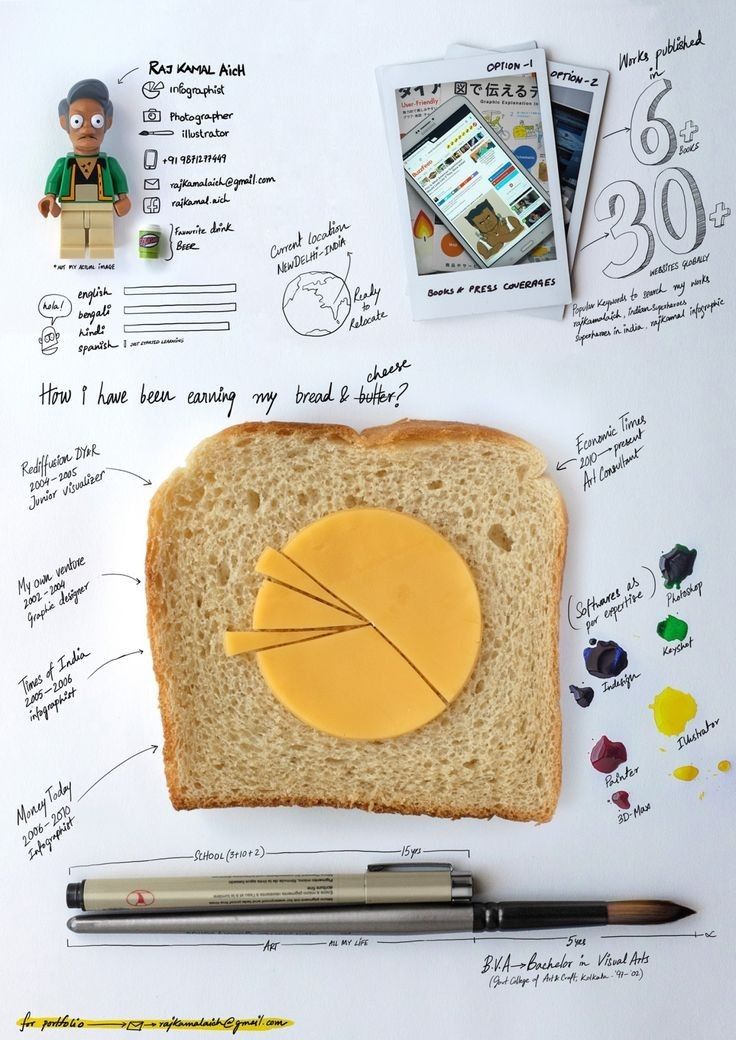 RAJ KAMAL AICH
infographist
Photographer
illustrator
+91 9871277449
rajkamalaich@gmail.com
rajkamal.aich
Favourite drink
BEER
*NOT MY ACTUAL IMAGE
hola!
english
bengali
hindi
spanish
JUST STARTED LEARNING
Current location
NEW DELHI-INDIA
Ready
to
Relocate
OPTION-1
OPTION-2
User-Friendly
図で伝えるデ
Graphic Explanation in
BuzzFeed
BOOKS & PRESS COVERAGES
Works published
in
6+
BOOKS
30+
WEBSITES GLOBALLY
Popular Keywords to search my works
rajkamalaich, indian superheroes
superheroes in india, rajkamal infographic
How i have been earning my bread & butter?
cheese
Rediffusion DY&R
2004-2005
Junior visualizer
My own venture
2002-2004
Graphic designer
Times of India
2005-2006
infographist
Money Today
2006-2010
Infographist
Economic Times
2010→present
Art Consultant
(Softwares as
per expertise)
Photoshop
Keyshot
Indesign
Illustrator
Painter
3D-Max
SCHOOL (3+10+2)
15yrs
ART
ALL MY LIFE
5yrs
∝
B.V.A→Bachelor in Visual Arts
(Govt College of Art & Craft, Kolkata-'97-'02)
for portfolio → rajkamalaich@gmail.com